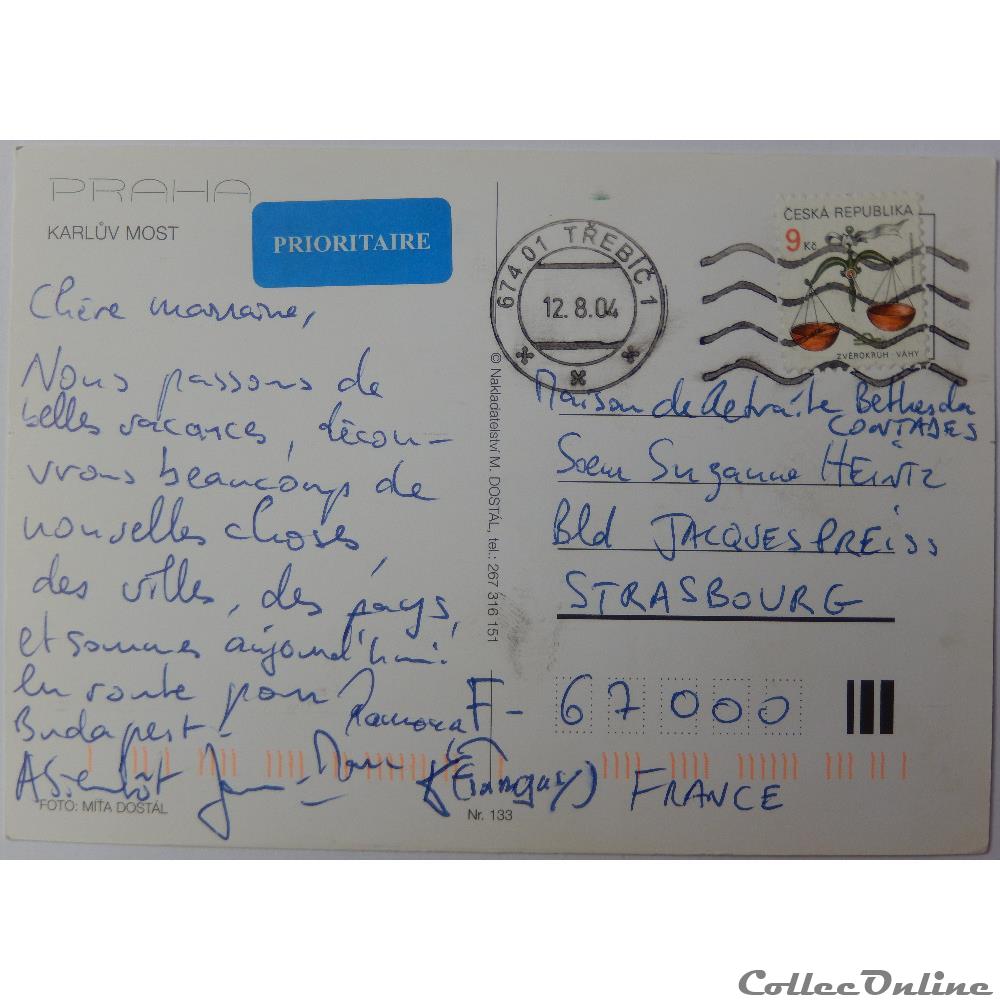 PRAHA
KARLŮV MOST
PRIORITAIRE
Chère marraine,
Nous passons de
belles vacances, décou-
vrons beaucoup de
nouvelles choses,
des villes, des pays,
et sommes aujourd'hui
en route pour
Budapest.
Ramona
A Bientôt
FOTO: MÍŤA DOSTÁL
© Nakladatelství M. DOSTÁL, tel.: 267 316 151
Nr. 133
674 01 TŘEBÍČ 1
12.8.04
ČESKÁ REPUBLIKA
9 Kč
ZVĚROKRUH - VÁHY
Maison de Retraite Bethesda
CONTADES
Soeur Suzanne HEINTZ
Bld JACQUES PREISS
STRASBOURG
F- 67000
FRANCE
CollecOnline